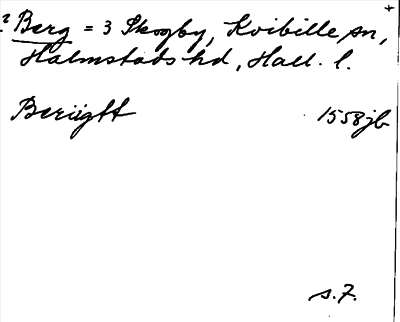 ? Berg = 3 Skogby, Kvibille sn,
Halmstads hd, Hall. l.
Beriigtt 1558 jb
s. 7.